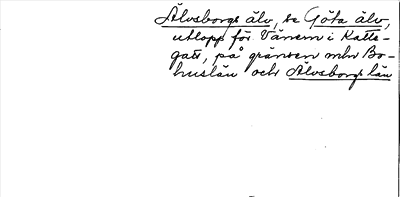 Älvsborgs älv, se Göta älv,
utlopp för Vänern i Katte-
gatt, på gränsen mln Bo-
huslän och Älvsborgs län